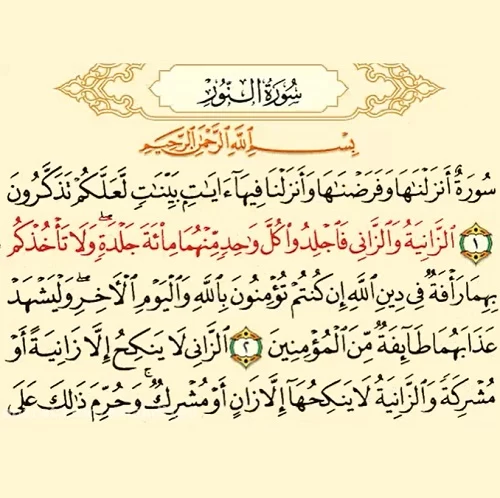 سُورَةُ النُّورِ
بِسْمِ ٱللَّهِ ٱلرَّحْمَٰنِ ٱلرَّحِيمِ
سُورَةٌ أَنزَلْنَٰهَا وَفَرَضْنَٰهَا وَأَنزَلْنَا فِيهَآ ءَايَٰتٍۭ بَيِّنَٰتٍ لَّعَلَّكُمْ تَذَكَّرُونَ
١ ٱلزَّانِيَةُ وَٱلزَّانِى فَٱجْلِدُوا۟ كُلَّ وَٰحِدٍ مِّنْهُمَا مِا۟ئَةَ جَلْدَةٍ ۖ وَلَا تَأْخُذْكُم
بِهِمَا رَأْفَةٌ فِى دِينِ ٱللَّهِ إِن كُنتُمْ تُؤْمِنُونَ بِٱللَّهِ وَٱلْيَوْمِ ٱلْأَخِرِ ۖ وَلْيَشْهَدْ
عَذَابَهُمَا طَآئِفَةٌ مِّنَ ٱلْمُؤْمِنِينَ ٢ ٱلزَّانِى لَا يَنكِحُ إِلَّا زَانِيَةً أَوْ
مُشْرِكَةً وَٱلزَّانِيَةُ لَا يَنكِحُهَآ إِلَّا زَانٍ أَوْ مُشْرِكٌ ۚ وَحُرِّمَ ذَٰلِكَ عَلَى